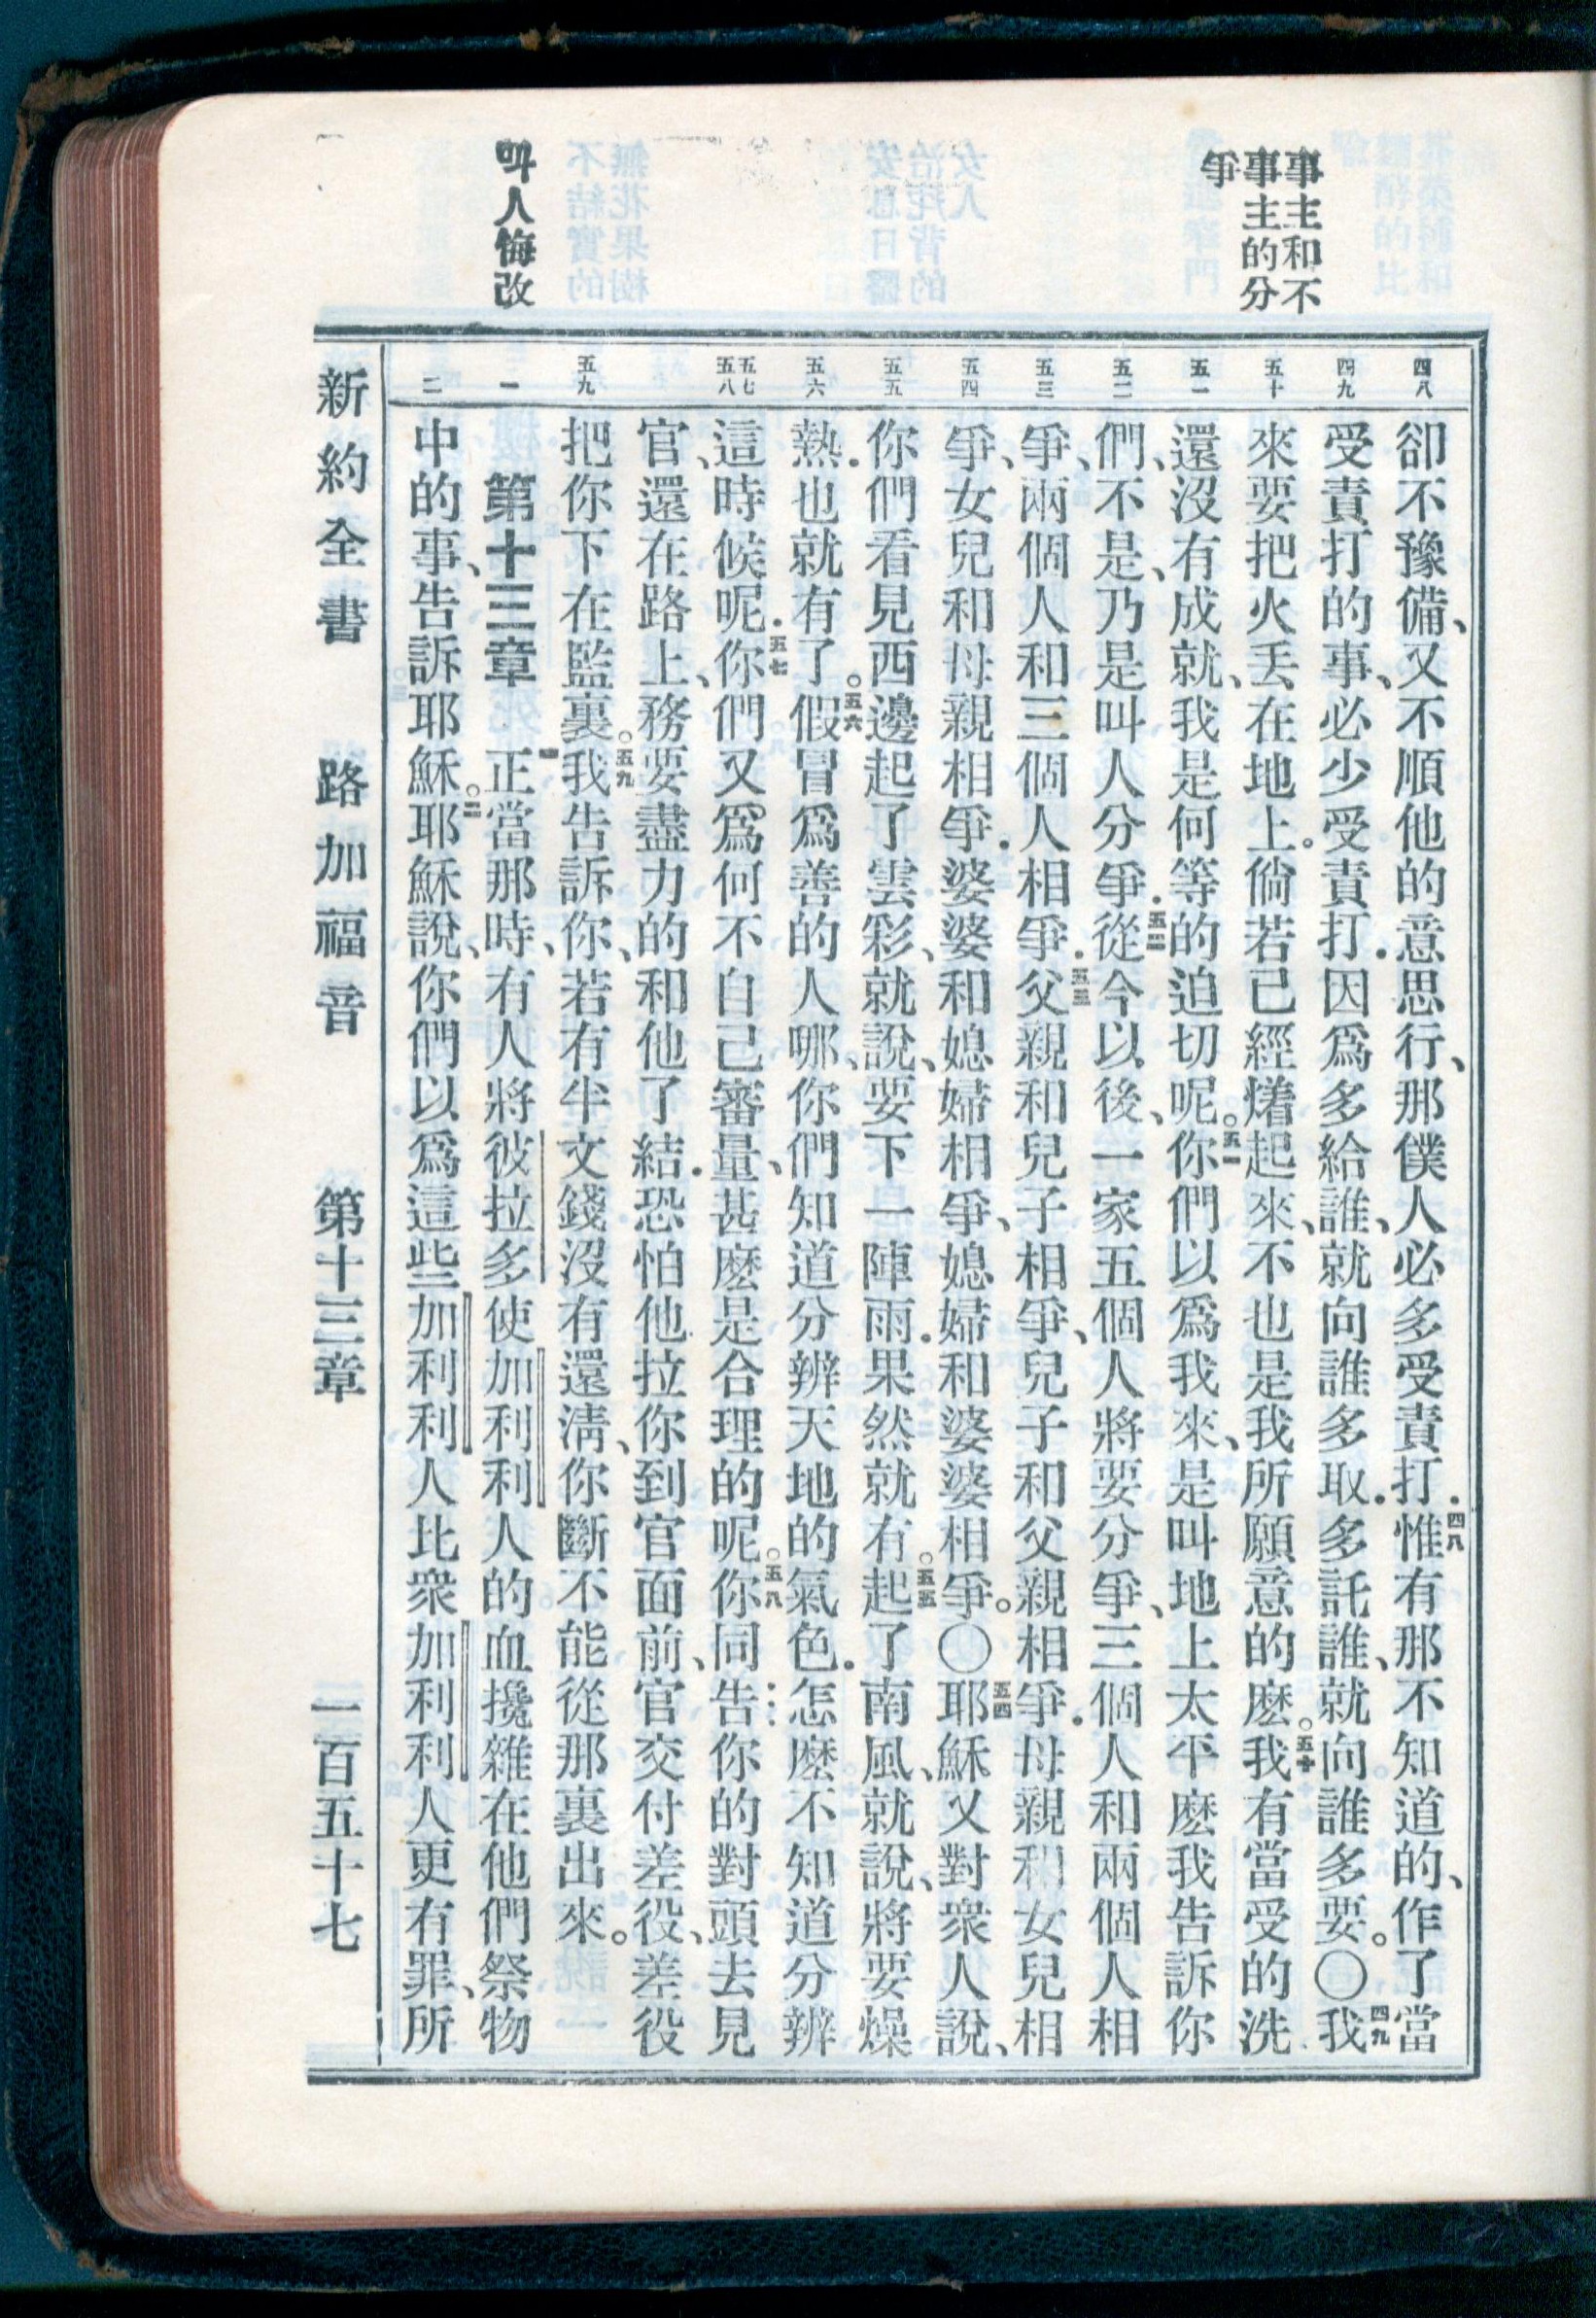 事主和不
事主的分
爭
叫人悔改
四八
四九
五十
五一
五二
五三
五四
五五
五六
五七
五八
五九
一
二
卻不豫備、又不順他的意思行、那僕人必多受責打．四八惟有那不知道的、作了當
受責打的事、必少受責打．因爲多給誰、就向誰多取．多託誰、就向誰多要。〇四九我
來要把火丟在地上。倘若已經燔起來、不也是我所願意的麽。五十我有當受的洗
還沒有成就、我是何等的迫切呢。五一你們以爲我來、是叫地上太平麽我告訴你
們、不是、乃是叫人分爭．五二從今以後、一家五個人將要分爭、三個人和兩個人相
爭、兩個人和三個人相爭．五三父親和兒子相爭、兒子和父親相爭．母親和女兒相
爭、女兒和母親相爭．婆婆和媳婦相爭、媳婦和婆婆相爭。〇五四耶穌又對衆人說、
你們看見西邊起了雲彩、就說、要下一陣雨．果然就有。五五起了南風、就說、將要燥
熱．也就有了。五六假冒爲善的人哪、你們知道分辨天地的氣色．怎麽不知道分辨
這時候呢．五七你們又爲何不自己審量、甚麽是合理的呢。五八你同告你的對頭去見
官、還在路上、務要盡力的和他了結．恐怕他拉你到官面前、官交付差役、差役
把你下在監裏。五九我告訴你、若有半文錢沒有還淸、你斷不能從那裏出來。
第十三章　一正當那時、有人將彼拉多使加利利人的血攙雜在他們祭物
中的事、告訴耶穌。二耶穌說、你們以爲這些加利利人比衆加利利人更有罪、所
新約全書　路加福音　第十三章　一百五十七